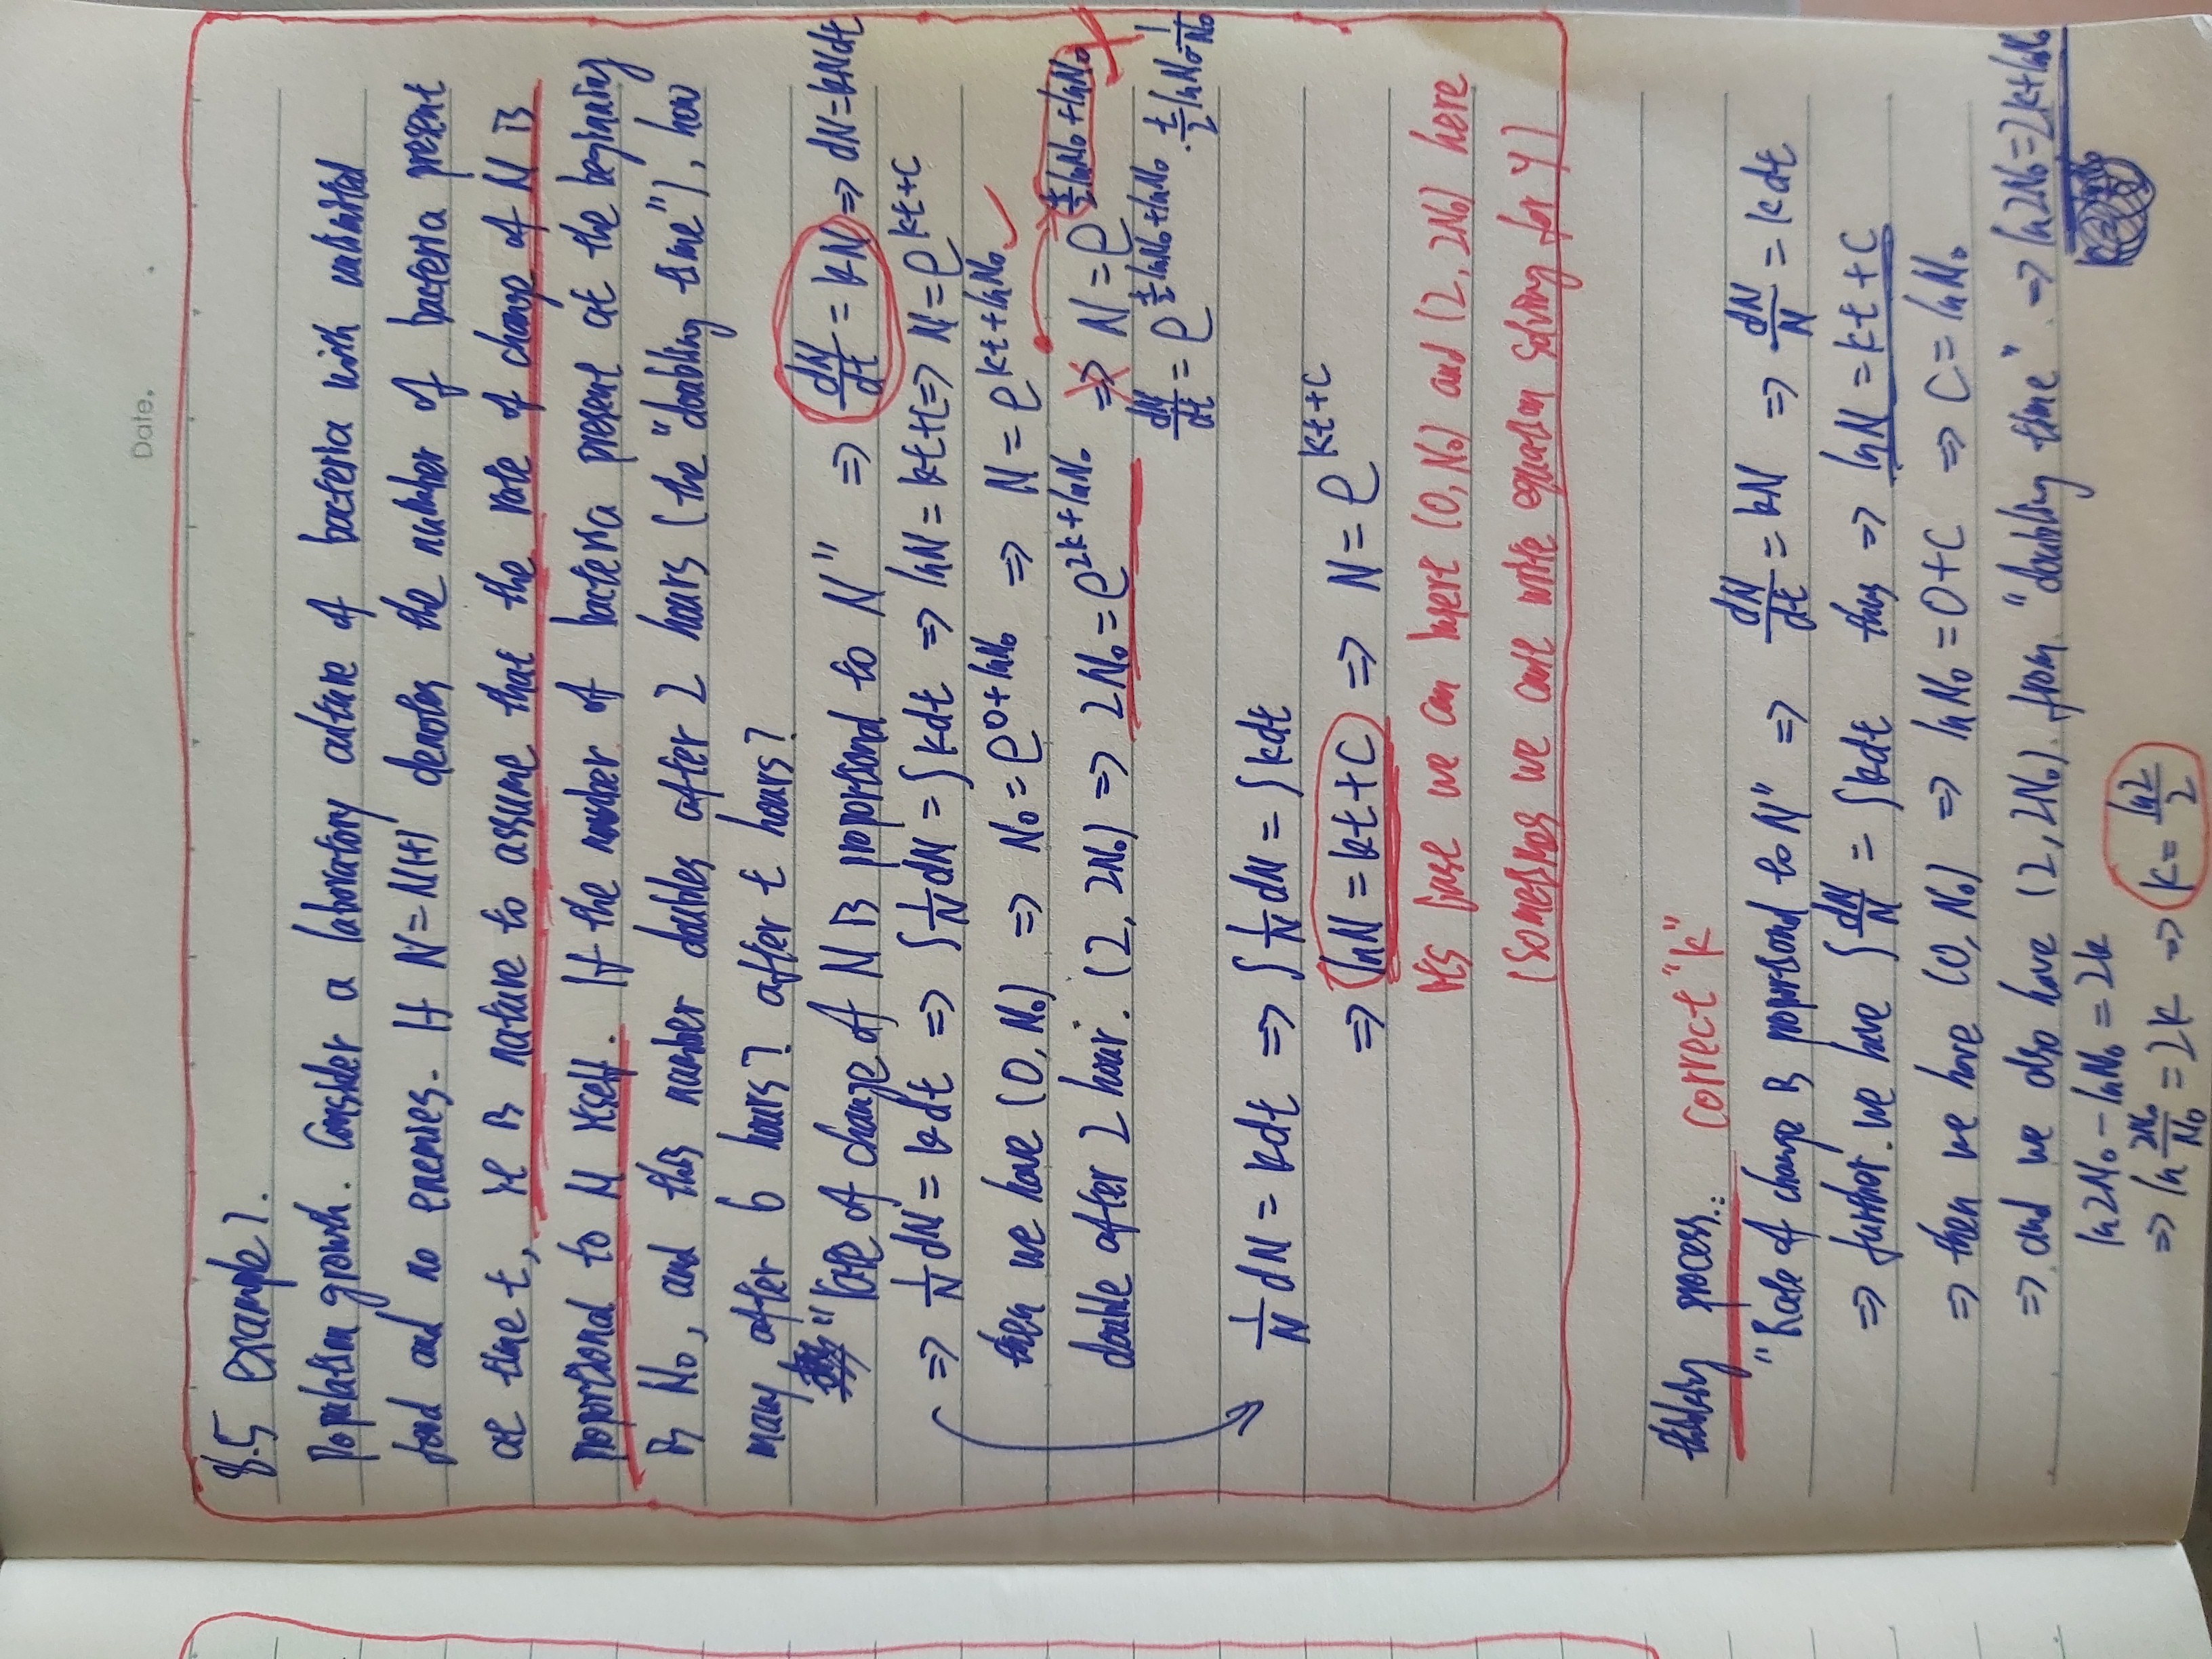 Date.
8.5 example 1.
Population growth. Consider a laboratory culture of bacteria with unlimited
food and no enemies. If N = N(t) denotes the number of bacteria present
at time t, it is nature to assume that the rate of change of N is
proportional to N itself. If the number of bacteria present at the beginning
is N₀, and this number doubles after 2 hours (the "doubling time"), how
many after 6 hours? after t hours?
"rate of change of N is proportional to N" ⇒ dN/dt = kN ⇒ dN = kNdt
⇒ 1/N dN = kdt ⇒ ∫1/N dN = ∫kdt ⇒ lnN = kt+c ⇒ N = e^(kt+c)
then we have (0, N₀) ⇒ N₀ = e^(0+lnN₀) ⇒ N = e^(kt+lnN₀) ✓
double after 2 hour. (2, 2N₀) ⇒ 2N₀ = e^(2k+lnN₀) ⇒ N = e^(t/2 lnN₀ + lnN₀)
dN/dt = e^(t/2 lnN₀ + lnN₀) · t/2 lnN₀ 1/N₀
1/N dN = kdt ⇒ ∫1/N dN = ∫kdt
⇒ lnN = kt+c ⇒ N = e^(kt+c)
we can insert (0, N₀) and (2, 2N₀) here
(sometimes we can't write equation solving for y)
thinking process.: correct "k"
"Rate of change is proportional to N" ⇒ dN/dt = kN ⇒ dN/N = kdt
⇒ further. we have ∫dN/N = ∫kdt thus ⇒ lnN = kt + c
⇒ then we have (0, N₀) ⇒ lnN₀ = 0+C ⇒ C = lnN₀
⇒ and we also have (2, 2N₀). from "doubling time" ⇒ ln2N₀ = 2k+lnN₀
ln2N₀ - lnN₀ = 2k
⇒ ln 2N₀/N₀ = 2k ⇒ k = ln2/2